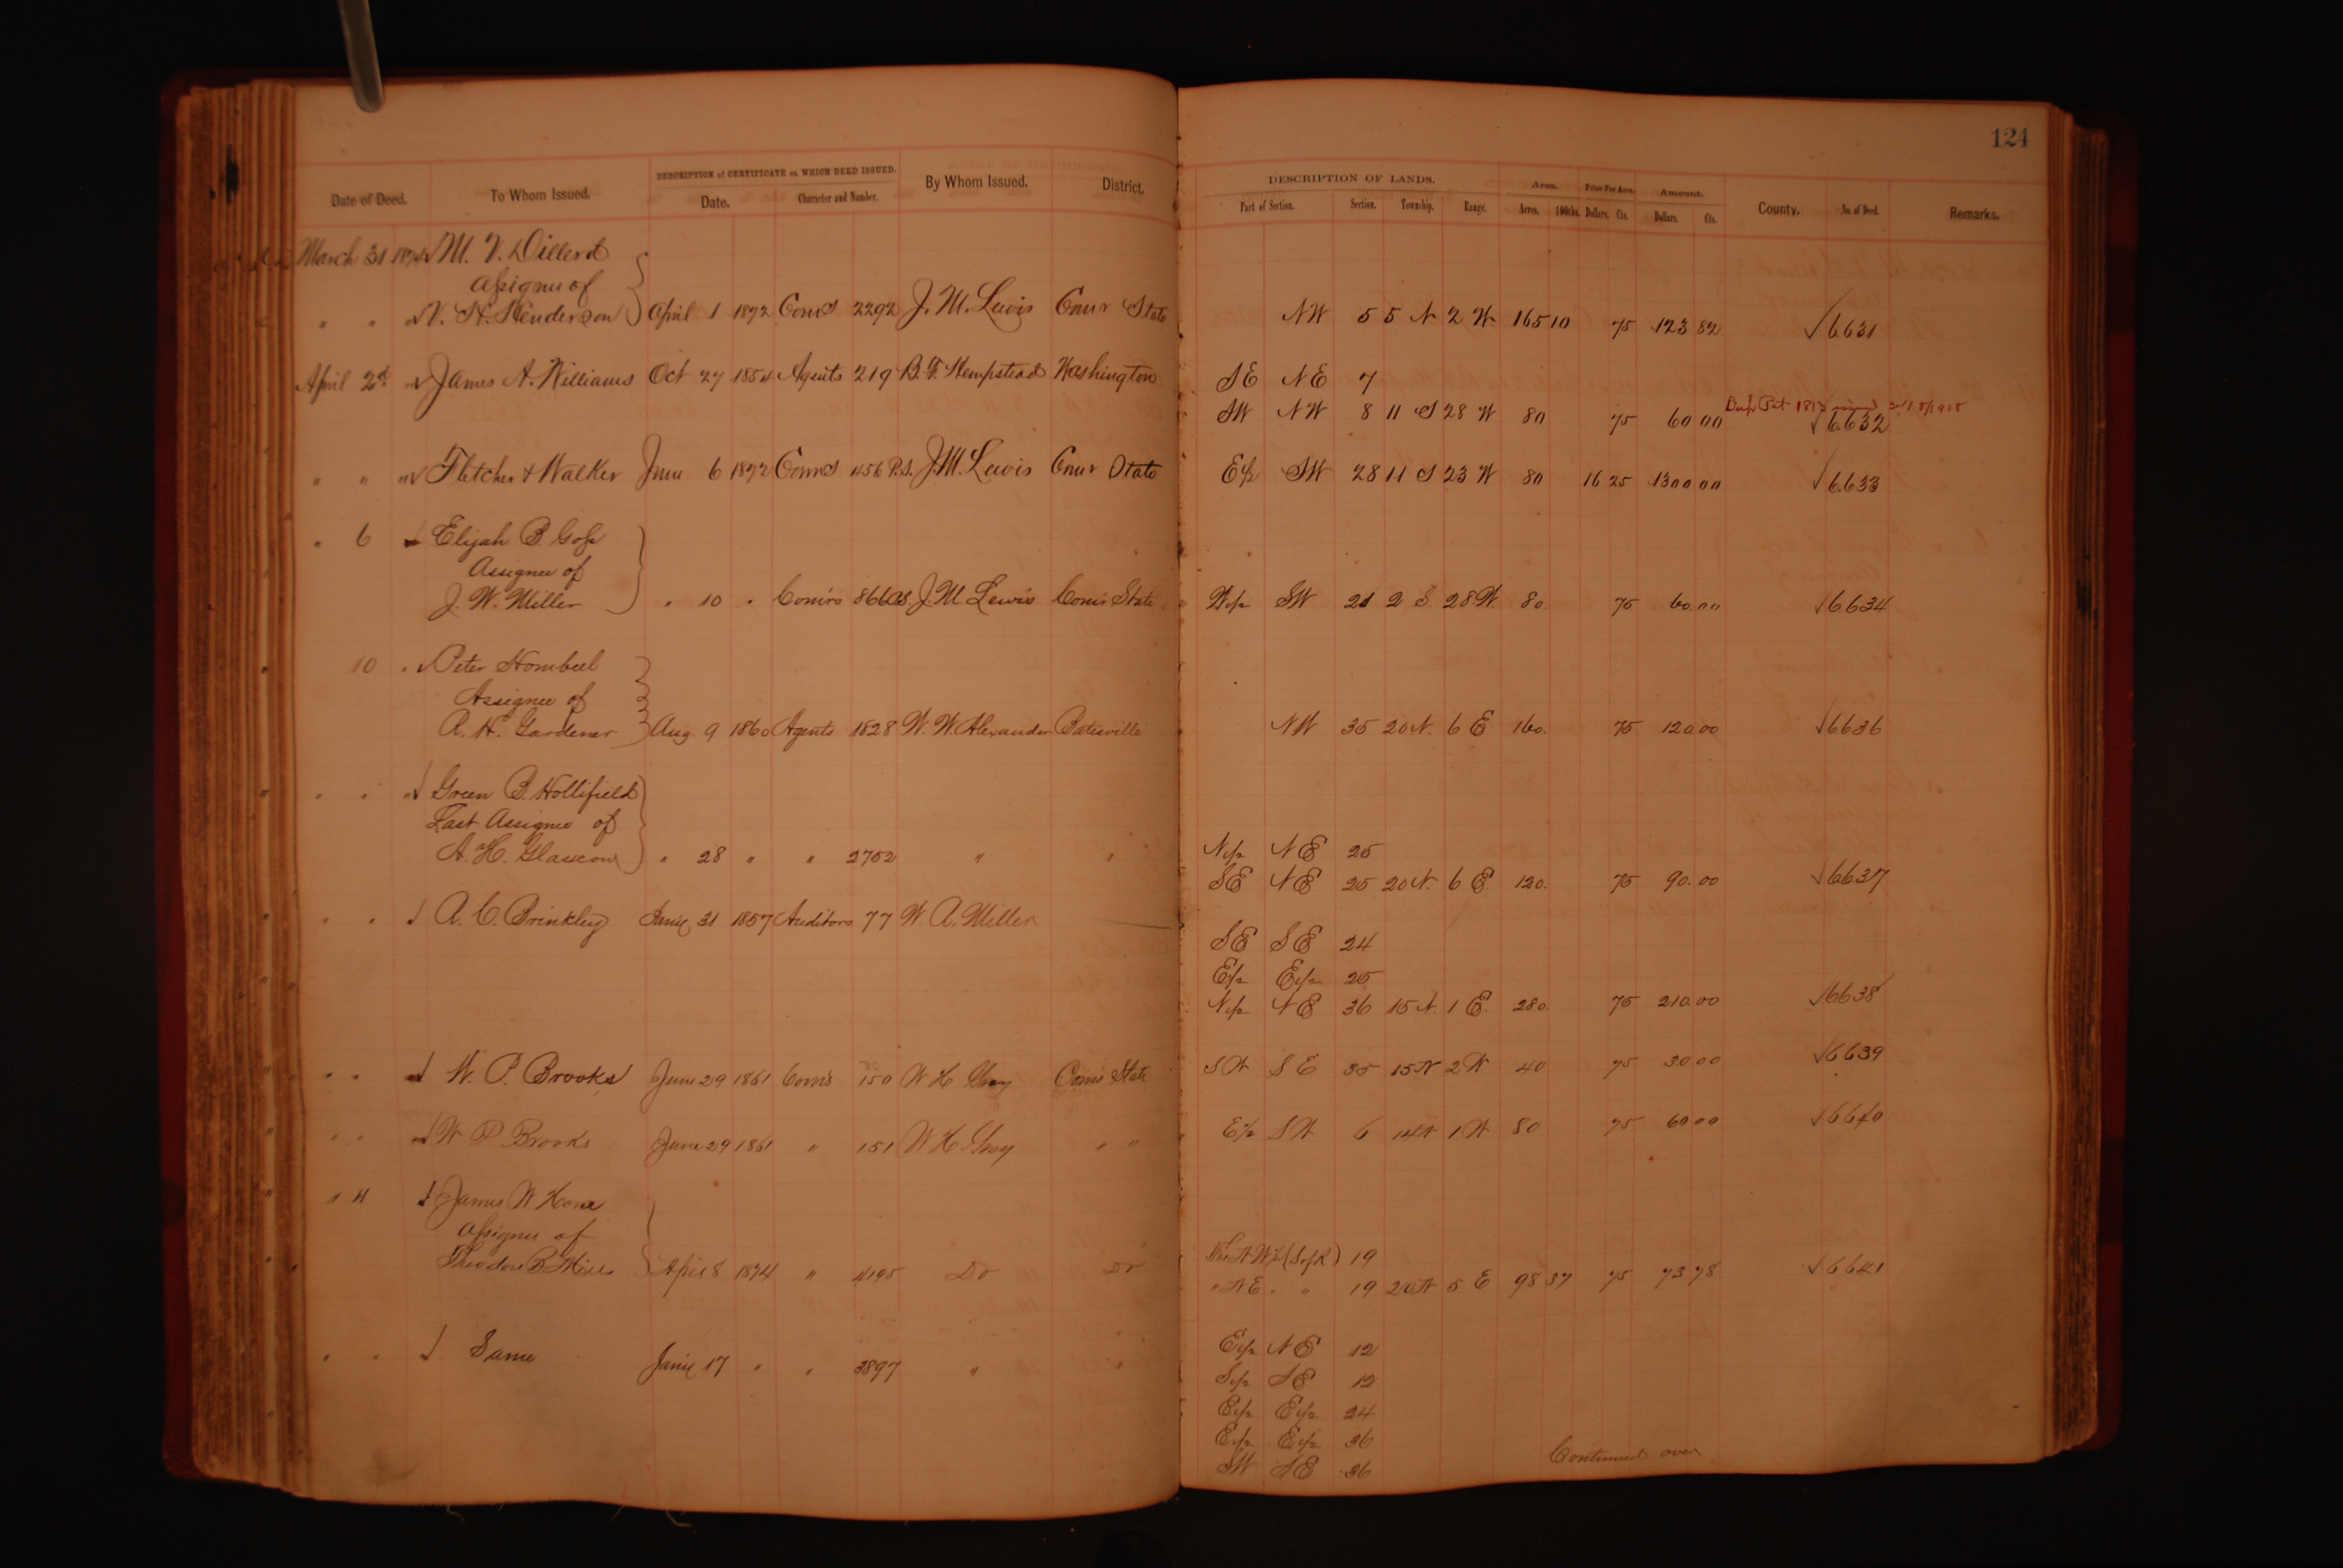 124
DESCRIPTION of CERTIFICATE on WHICH DEED ISSUED. DESCRIPTION OF LANDS. Area. Price Per Acre. Amount.
Date of Deed. To Whom Issued. Date. Character and Number. By Whom Issued. District. Part of Section. Section. Township. Range. Acres. 100ths. Dollars. Cts. Dollars. Cts. County. No. of Deed. Remarks.
March 31 1874 M. V. Dillerd
assignee of
" " " V. H. Henderson April 1 1872 Coms 2292 J. M. Lewis Comr State NW 5 5 N 2 W 165 10 75 123 82 6631
April 2d " James A. Williams Oct 27 1854 Agents 219 B. F. Hempstead Washington SE NE 7
Dup Pat 1813 issued
SW NW 8 11 S 28 W 80 75 60 00 6632
" " " Fletcher & Walker June 6 1872 Coms 456 P.S. J. M. Lewis Comr State E½ SW 28 11 S 23 W 80 16 25 1300 00 6633
" 6 Elijah B. Goss
Assignee of
J. W. Miller " 10 " Com's 866 J. M. Lewis Com's State W½ SW 21 2 S. 28 W. 80. 75 60.00 6634
10 " Peter Hombeel
Assignee of
A. H. Gardener Aug. 9 1860 Agents 1828 W. W. Alexander Batesville NW 35 20 N. 6 E 160. 75 120.00 6636
" " " Green B. Hollifield
Last Assignee of
A. H. Glasscow " 28 " " 2752 " " N½ NE 25
SE NE 25 20 N. 6 E. 120. 75 90.00 6637
" " A. C. Brinkley Jany 31 1857 Auditors 77 W. A. Miller
SE SE 24
E½ E½ 25
N½ NE 36 15 N. 1 E. 280. 75 210.00 6638
" " W. P. Brooks June 29 1861 Com's 150 W H Gray Coms State SW SE 35 15 N 2 W 40 75 30 00 6639
" " W P Brooks June 29 1861 " 151 W H Gray " " E½ SW 6 14 N 1 W 80 75 60 00 6640
" 11 James W Hone
assignee of
Theodore B Mills April 8 1874 " 4195 Do Do (S of R) 19
" NE " " 19 20 N 5 E 98 37 75 73 78 6641
" " Same Jany 17 " " 3897 " " E½ NE 12
S½ SE 12
E½ E½ 24
E½ E½ 36
SW SE 36
Continued over